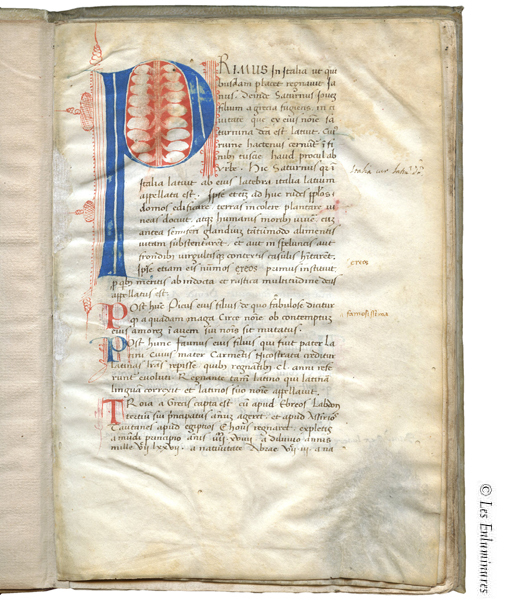 PRIMUS in Italia ut qui
busdam placet regnavit Ia
nus. Deinde Saturnus Iovez
filium a grecia fugiens. in ci
vitate que ex eius noie sa
turnina dca est latuit. Cui
ruine hactenus cernunt i fi
nibus tuscie haud procul ab
urbe. Hic Saturnus qr i
Italia latuit ab eius latebra italia latium
appellata est. Ipse et ad huc rudes pplos
domos edificare terras incolere plantare vi
neas docuit. atqz humanis moribus vivere. cuz
antea semiferi glandium tantummodo alimentis
vitam substentarent. et aut in speluncis aut
frondibus virgultisqz contextis casulis hitarent.
Ipse etiam eius numos ereos primus instituit
p qbus meritis ab indocta et rustica multitudine deus
appellatus est.
Post hunc Picus eius filius de quo fabulose dicitur
qz a quadam maga Circe noie ob contemptuz
eius amorez i avem sui nois sit mutatus.
Post hunc Faunus eius filius qui fuit pater La
tini Cuius mater Carmentis Nicostrata creditur
Latinas lras repisse. quibus regnantibus CL. anni refe
runtur evoluti. Regnante tamen latino qui latina
lingua correxit et latinos suo noie appellavit.
Troia a Grecis capta est. cum apud Ebreos Labdon
tertium sui principatus annuz ageret. et apud Assirios
Tautanes apud egiptios Thous regnaret. expletis
a mundi principio annis
a diluvio annis
mille
a nativitate Abrae
a na
Italia
ereos
famosissima
© Les Enluminures